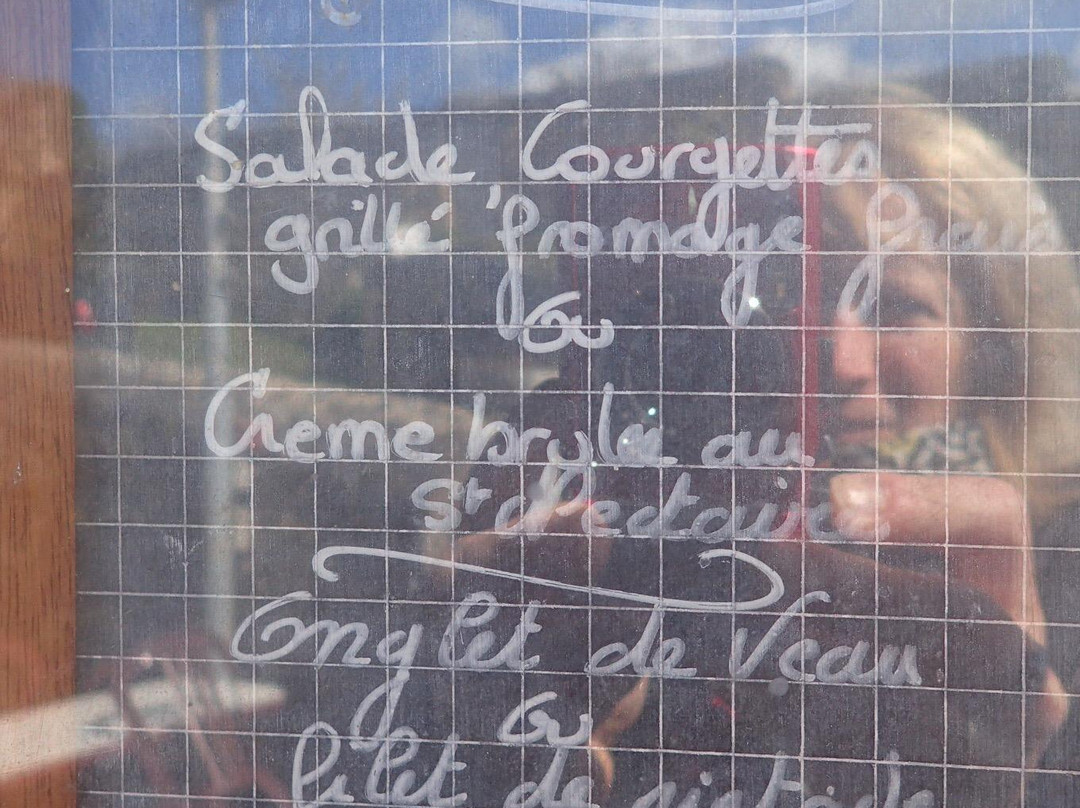 Salade Courgettes
grillé fromage frais
Ou
Creme brulée au
St Nectaire
Onglet de Veau
Ou
filet de pintade